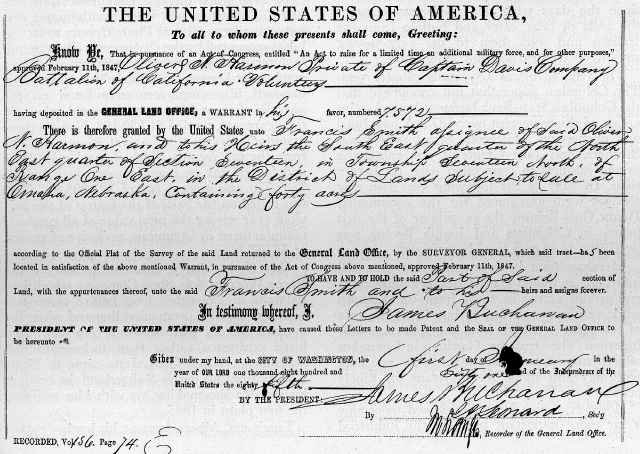 THE UNITED STATES OF AMERICA,
To all to whom these presents shall come, Greeting:
Know Ye, That in pursuance of an Act of Congress, entitled "An Act to raise for a limited time an additional military force, and for other purposes,"
approved February 11th, 1847, Oliver N. Harmon Private of Captain Davis Company
Battalion of California Volunteer
having deposited in the GENERAL LAND OFFICE, a WARRANT in his favor, numbered 7,572
There is therefore granted by the United States unto Francis Smith assignee of Said Oliver
N. Harmon, and to his Heirs the South East quarter of the North
East quarter of Section Seventeen, in Township Seventeen North, of
Range One East, in the District of Lands Subject to Sale at
Omaha, Nebraska, Containing forty acres
according to the Official Plat of the Survey of the said Land returned to the General Land Office, by the SURVEYOR GENERAL, which said tract has been
located in satisfaction of the above mentioned Warrant, in pursuance of the Act of Congress above mentioned, approved February 11th, 1847.
TO HAVE AND TO HOLD the said Part of Said section of
Land, with the appurtenances thereof, unto the said Francis Smith and to his heirs and assigns forever.
In testimony whereof, I, James Buchanan
PRESIDENT OF THE UNITED STATES OF AMERICA, have caused these Letters to be made Patent and the SEAL OF THE GENERAL LAND OFFICE to
be hereunto
Given under my hand, at the CITY OF WASHINGTON, the first day in the
year of OUR LORD one thousand eight hundred and Sixty one and of the Independence of the
United States the eighty fifth
BY THE PRESIDENT: James Buchanan
By Leonard, Sec'y
, Recorder of the General Land Office.
RECORDED, Vol. 456. Page 74.